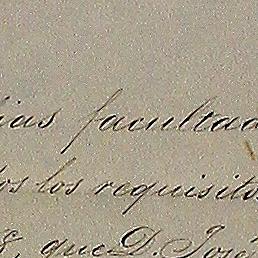 ias facultad
os los requisitos
que D. José